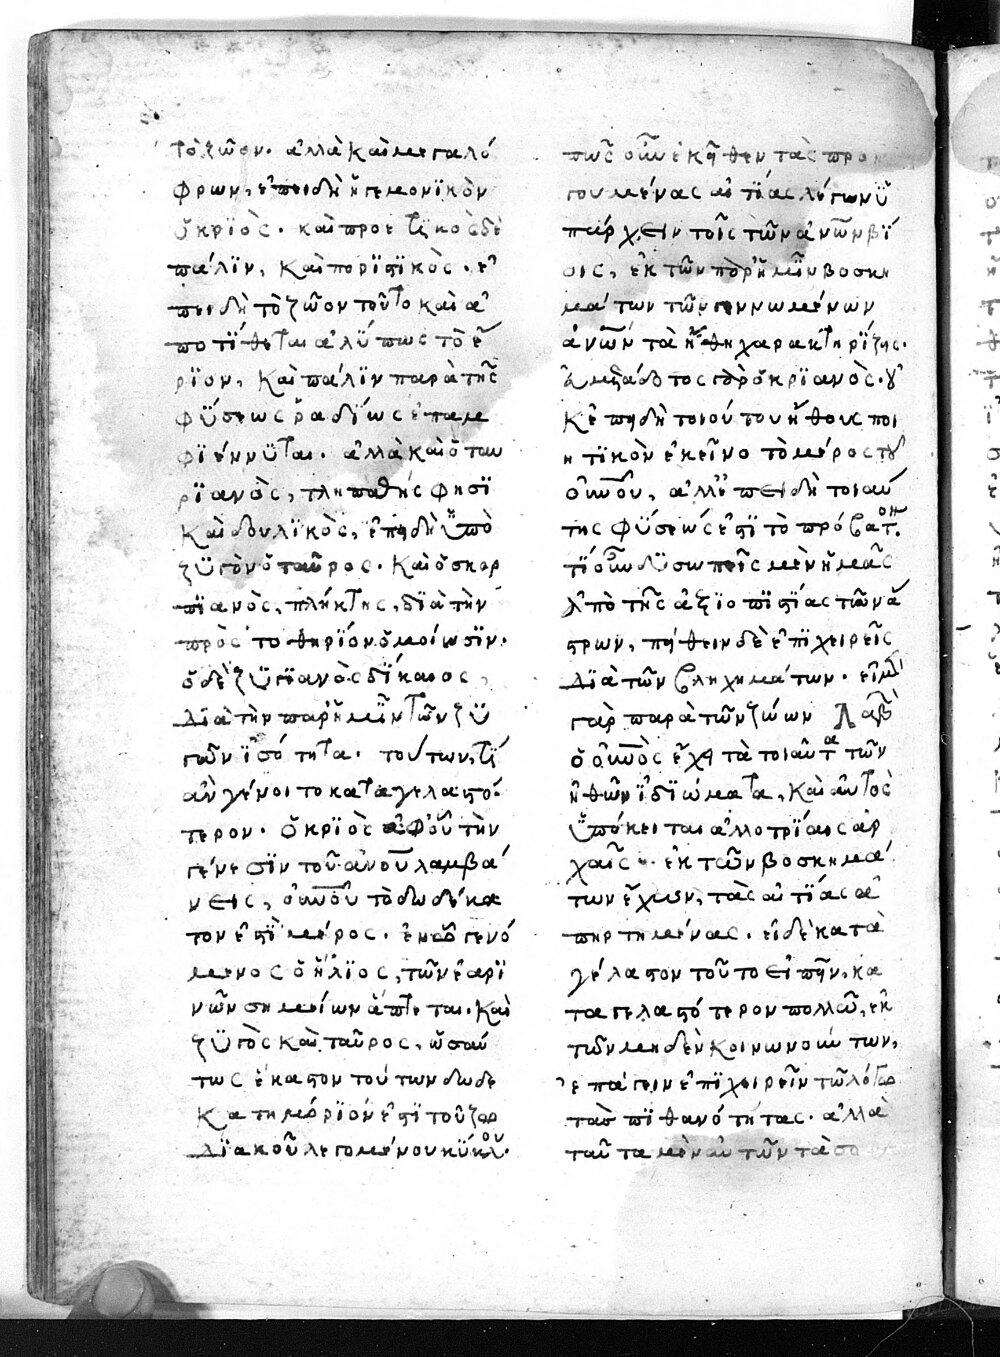 τὸ ζῶον· ἀλλὰ καὶ μεγαλό
φρων, ἐπειδὴ ἡγεμονϊκὸν
ὁ κρϊὸς· καὶ προετϊκὸς δὲ
πάλϊν, καὶ πορϊστϊκὸς· ἐ
πειδὴ τὸ ζῶον τοῦτο καὶ ἀ
ποτΐθεται ἀλύπως τὸ ἔ
ρϊον, καὶ πάλϊν παρὰ τῆς
φύσεως ῥαδΐως ἐπαμ
φϊέννϋται· ἀλλὰ καὶ ὁ ταυ
ρϊανὸς, τληπαθής φησϊ
καὶ δουλϊκὸς, ἐπειδὴ ὑπὸ
ζϋγὸν ὁ ταῦρος· καὶ ὁ σκορ
πϊανὸς, πλήκτης, δϊὰ τὴν
πρὸς τὸ θηρΐον ὁμοίωσϊν·
ὁ δὲ ζϋγϊανὸς δΐκαιος,
δϊὰ τὴν παρ' ἡμῖν τῶν ζϋ
γῶν ἰσότητα· τούτων, τΐ
ἂν γένοιτο καταγελαστό
τερον· ὁ κρϊὸς ἀφ' οὗ τὴν
γένεσϊν τοῦ ἀνου λαμβά
νεις, οὐνοῦ τὸ δωδέκα
τον ἐστὶ μέρος· ἐν ᾧ γενό
μενος ὁ ἥλϊος, τῶν ἐαρϊ
νῶν σημείων ἅπτεται· καὶ
ζϋγὸς καὶ ταῦρος, ὡσαύ
τως ἕκαστον τούτων δωδε
κατημόρϊόν ἐστϊ τοῦ ζω
δϊακοῦ λεγομένου κύκλου·
πῶς οὖν ἐκεῖθεν τὰς προη
γουμένας αἰτΐας λέγων ὑ
πάρχειν τοῖς τῶν ἀνων βΐ
οις, ἐκ τῶν παρ' ἡμῖν βοσκη
μάτων τῶν γεννωμένων
ἀνων τὰ ἤθη χαρακτηρΐζεις·
εὐμετάδοτος γὰρ ὁ κρϊανὸς· οὐ
κ ἐπειδὴ τοιούτου ἤθους ποι
ητϊκὸν ἐκεῖνο τὸ μέρος τοῦ
οὐνοῦ, ἀλλ' ἐπειδὴ τοιαύ
της φύσεώς ἐστϊ τὸ πρόβατον·
τΐ οὖν δϋσωπεῖς μὲν ἡμᾶς
ἀπὸ τῆς ἀξϊοπϊστΐας τῶν ἄ
στρων, πείθειν δὲ ἐπϊχειρεῖς
δϊὰ τῶν βληχημάτων· εἰ μὲν
γὰρ παρὰ τῶν ζώων λαβὼν
ὁ οὐνὸς ἔχει τὰ τοιαῦτα τῶν
ἠθῶν ἰδϊώματα, καὶ αὐτὸς
ὑπόκειται ἀλλοτρΐαις ἀρ
χαῖς· ἐκ τῶν βοσκημά
των ἔχων, τὰς αἰτΐας ἀ
πηρτημένας· εἰ δὲ κατα
γέλαστον τοῦτο εἰπεῖν, κα
ταγελαστότερον πολλῷ, ἐκ
τῶν μηδὲν κοινωνούντων,
ἐπάγειν ἐπϊχειρεῖν τῷ λόγῳ
τὰς πϊθανότητας· ἀλλὰ
ταῦτα μὲν αὐτῶν τὰ σο